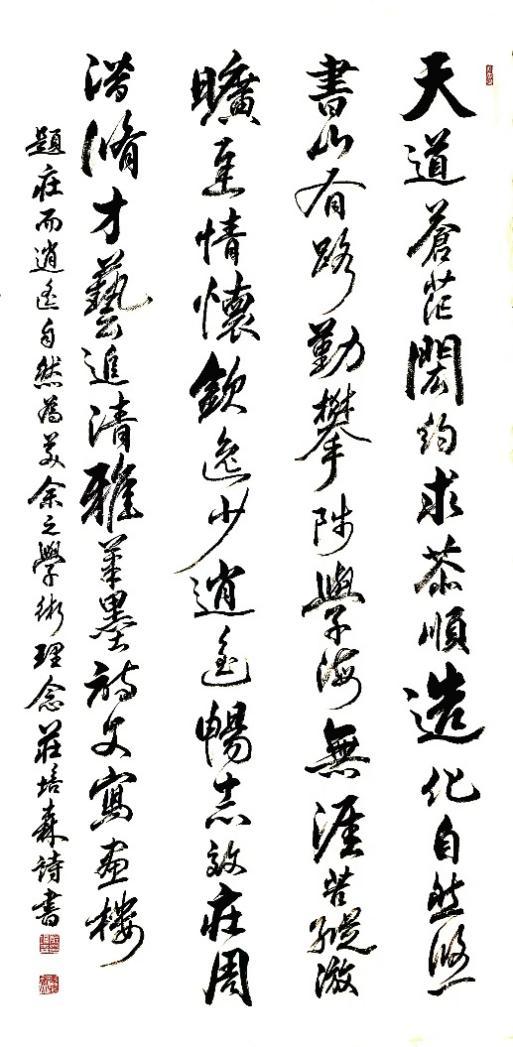 天道蒼茫閎約求恭順造化自然悠
書山有路勤攀陟學海無涯苦
曠達情懷欽逸少逍遙暢志效庄周
潛脩才藝追清雅筆墨詩文寫畫樓
題庄而逍遙自然為美余之學術理念莊培森詩書